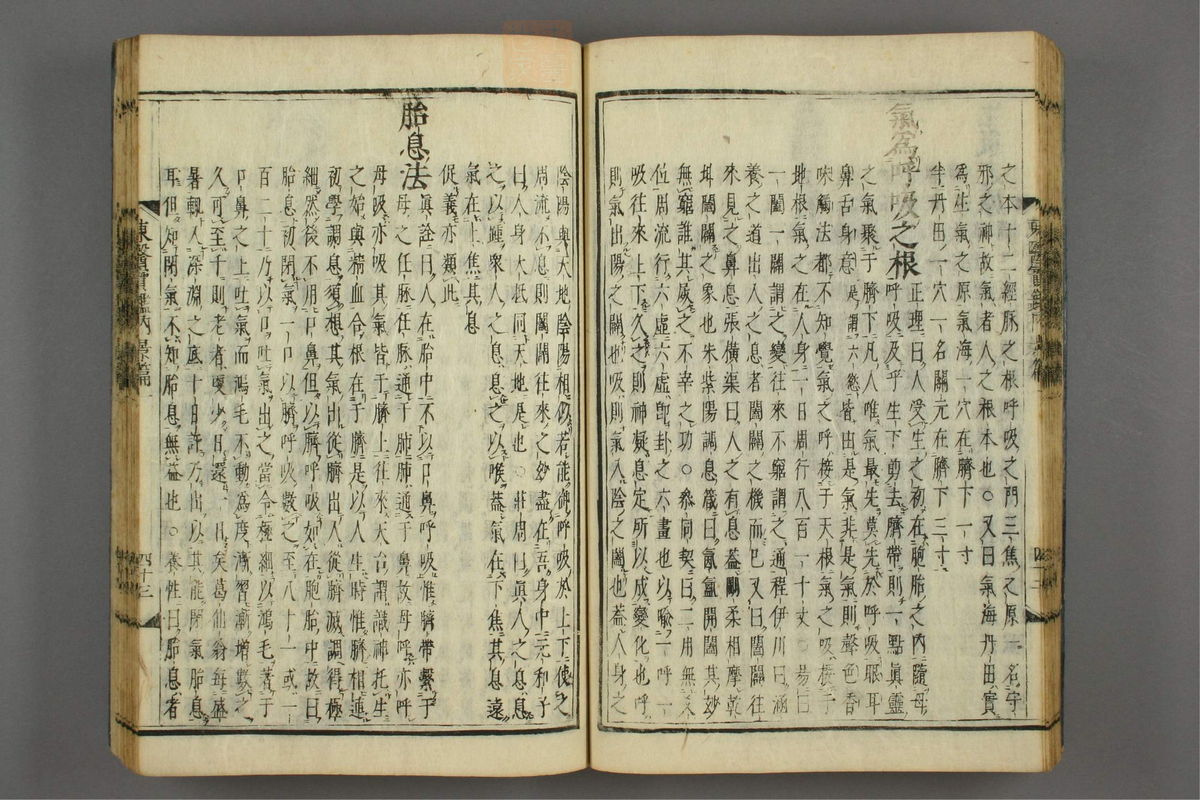 之本十二經脉之根呼吸之門三焦之原一名守
邪之神故氣者人之根本也○又曰氣海丹田實
爲生氣之原氣海一穴在臍下一寸
半丹田一穴一名關元在臍下三寸
氣爲呼吸之根
正理曰人受生之初在胞胎之內隨母
呼吸及乎生下剪去臍帶則一點眞靈
之氣聚于臍下凡人唯氣最先莫先於呼吸眼耳
鼻舌身意是謂六慾皆由是氣非是氣則聲色香
味觸法都不知覺氣之呼接于天根氣之吸接于
地根氣之在人身一日周行八百一十丈○易曰
一闔一闢謂之變往來不窮謂之通程伊川曰涵
養之道出入之息者闔闢之機而已又曰闔闢往
來見之鼻息張橫渠曰人之有息蓋剛柔相摩乾
坤闔闢之象也朱紫陽調息箴曰氤氳開闔其妙
無窮誰其尸之不宰之功○參同契曰二用無爻
位周流行六虛六虛卽卦之六畫也以喩一呼一
吸往來上下久之則神凝息定所以成變化也呼
則氣出陽之闢也吸則氣入陰之闔也蓋人身之
陰陽與天地陰陽相似若能御呼吸於上下使之
周流不息則闔闢往來之妙盡在吾身中元和子
曰人身大抵同天地是也○莊周曰眞人之息息
之以踵衆人之息息之以喉蓋氣在下焦其息遠
氣在上焦其息
促義亦類此
胎息法
眞詮曰人在胎中不以口鼻呼吸惟臍帶繫于
母之任脉任脉通于肺肺通于鼻故母呼亦呼
母吸亦吸其氣皆于臍上往來天台謂識神托生
之始與精血合根在于臍是以人生時惟臍相連
初學調息須想其氣出從臍出入從臍滅調得極
細然後不用口鼻但以臍呼吸如在胞胎中故曰
胎息初閉氣一口以臍呼吸數之至八十一或一
百二十乃以口吐氣出之當令極細以鴻毛著于
口鼻之上吐氣而鴻毛不動爲度漸習漸增數之
久可至千則老者更少日還一日矣葛仙翁每盛
暑輒入深淵之底十日許乃出以其能閉氣胎息
耳但知閉氣不知胎息無益也○養性曰胎息者
東醫寶鑑內景篇一
四十三